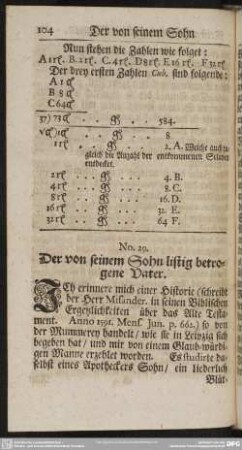 104 Der von seinem Sohn
Nun stehen die Zahlen wie folget:
A 1 B. 2 C. 4 D 8 E. 16 F 32
Der drey ersten Zahlen Cub. sind folgende:
A 1
B 8
C 64
37) 73 584.
8
1 2. A. Welche auch zu
gleich die Anzahl der entkommenen
entdecket.
2 4. B.
4 8. C.
8 16. D.
16 32. E.
32 64. F
No. 29.
Der von seinem Sohn listig betro-
gene Vater.
ICh erinnere mich einer Historie (schreibt
der Herr Misander, in seinen Biblischen
Ergezlichkeiten über das Alte Testa-
ment. Anno 1691. Mens. Jun. p. 662.) so von
der Mummerey handelt / wie sie in Leipzig sich
begeben hat / und mir von einem Glaub-würdi-
gen Manne erzehlet worden. Es studirte da-
selbst eines Apotheckers Sohn / ein liederlich
Blät-